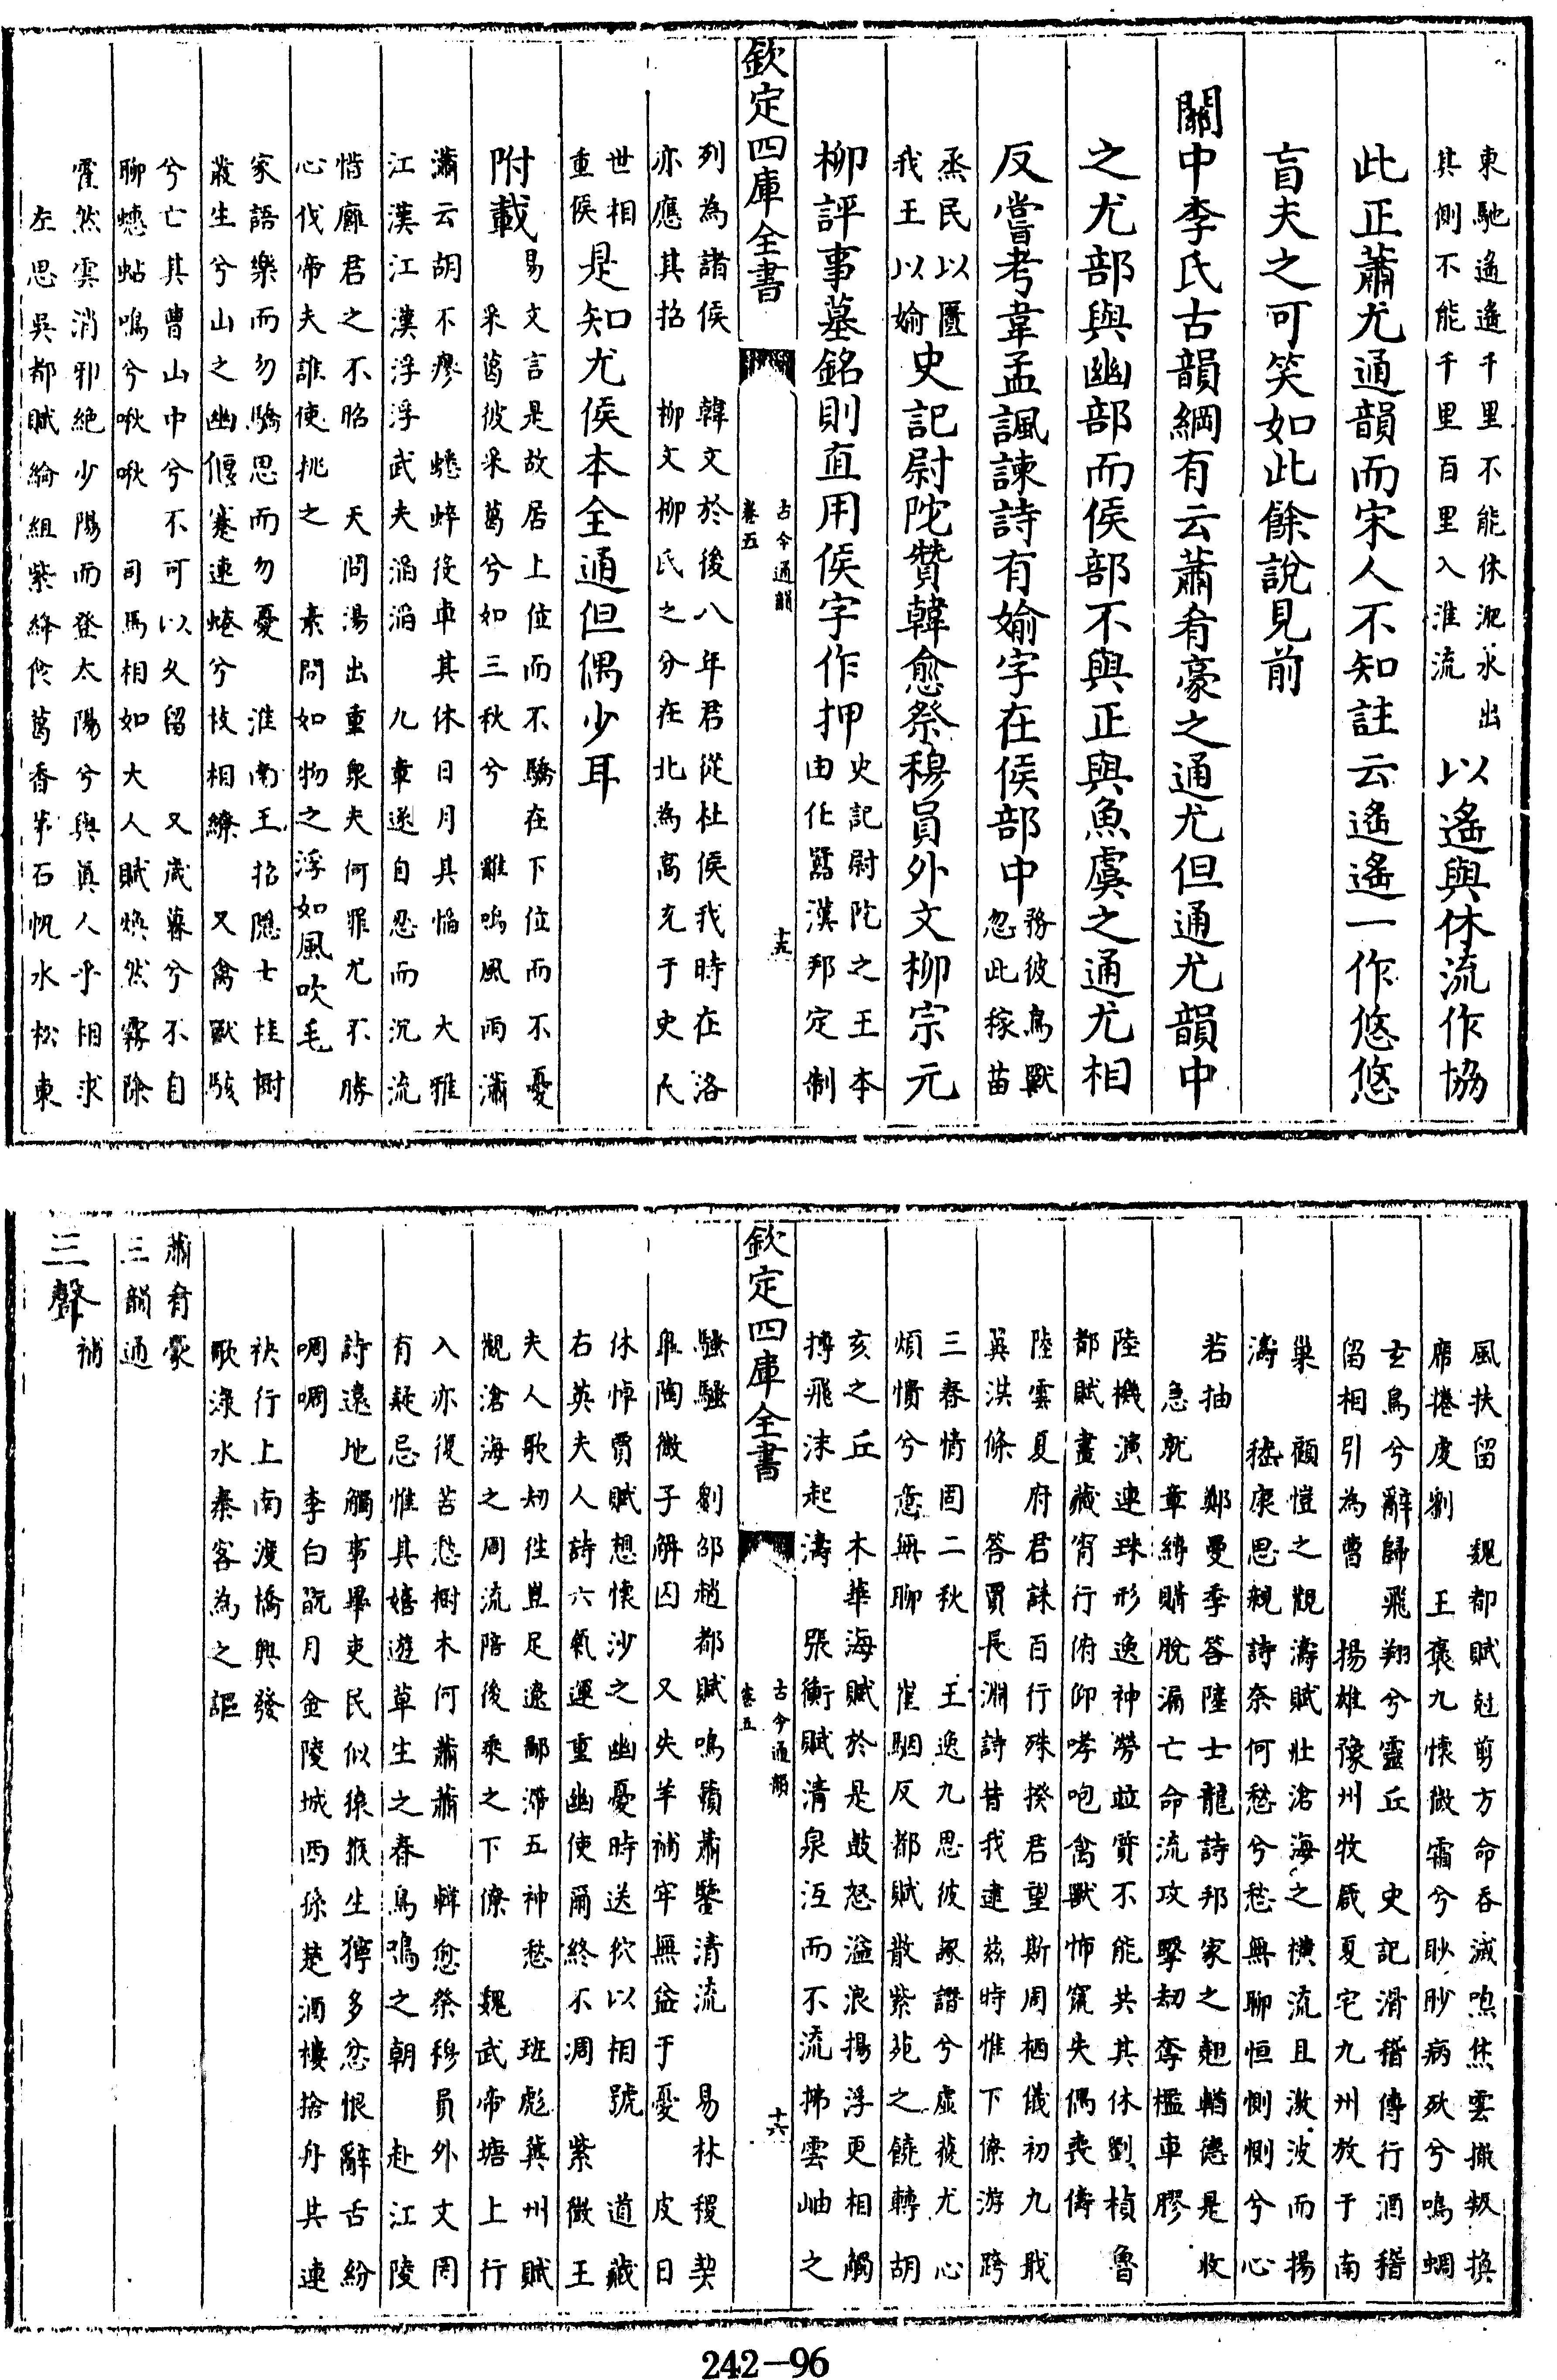 東馳遙遙千里不能休泥水出
其側不能千里百里入淮流
以遙與休流作協
此正蕭尤通韻而宋人不知註云遙遙一作悠悠
盲夫之可笑如此餘說見前
關中李氏古韻綱有云蕭肴豪之通尤但通尤韻中
之尤部與幽部而侯部不與正與魚虞之通尤相
反嘗考韋孟諷諫詩有婾字在侯部中
務彼鳥獸
忽此稼苗
烝民以匱
我王以婾
史記尉陀贊韓愈祭穆員外文柳宗元
柳評事墓銘則直用侯字作押
史記尉陀之王本
由任囂漢邦定制
欽定四庫全書
古今通韻
卷五
十五
列為諸侯 韓文於後八年君從杜侯我時在洛
亦應其招 柳文柳氏之分在北為高充于史氏
世相
重侯
是知尤侯本全通但偶少耳
附載
易文言是故居上位而不驕在下位而不憂
采葛彼采葛兮如三秋兮 雞鳴風雨瀟
瀟云胡不瘳 蟋蟀役車其休日月其慆 大雅
江漢江漢浮浮武夫滔滔 九章遂自忍而沉流
惜廱君之不昭 天問湯出重泉夫何罪尤不勝
心伐帝夫誰使挑之 素問如物之浮如風吹毛
家語樂而勿驕思而勿憂 淮南王招隱士桂樹
叢生兮山之幽偃蹇連蜷兮枝相繚 又禽獸駭
兮亡其曹山中兮不可以久留 又歲暮兮不自
聊蟪蛄鳴兮啾啾 司馬相如大人賦煥然霧除
霍然雲消邪絕少陽而登太陽兮與眞人乎相求
左思吳都賦綸組紫絳食葛香茅石帆水松東
風扶留 魏都賦尅剪方命吞滅咆烋雲撤叛換
席捲虔劉 王褒九懷微霜兮眇眇病殀兮鳴蜩
玄鳥兮辭歸飛翔兮靈丘 史記滑稽傳行酒稽
留相引為曹 揚雄豫州牧箴夏宅九州放于南
巢 顧愷之觀濤賦壯滄海之橫流且激波而揚
濤 嵇康思親詩奈何愁兮愁無聊恒惻惻兮心
若抽 鄭曼季答陸士龍詩邦家之翹輶德是收
急就章縛購脫漏亡命流攻擊劫奪檻車膠
陸機演連珠形逸神勞並質不能共其休劉楨魯
都賦晝藏宵行俯仰哮咆禽獸怖竄失偶喪儔
陸雲夏府君誄百行殊揆君望斯周栖儀初九戢
英洪條 答賈長淵詩昔我逮茲時惟下僚游跨
三春情固二秋 王逸九思彼諑譖兮虛獲尤心
煩憒兮意無聊 崔駰反都賦散紫苑之饒轉胡
亥之丘 木華海賦於是鼓怒溢浪揚浮更相觸
搏飛沫起濤 張衡賦清泉沍而不流拂雲岫之
欽定四庫全書
古今通韻
卷五
十六
騷騷 劉邵趙都賦鳴籟蕭鑒清流 易林稷契
臯陶微子解囚 又失羊補牢無益于憂 皮日
休悼賈賦想懷沙之幽憂時送欷以相號 道藏
右英夫人詩六氣運重幽使爾終不凋 紫微王
夫人歌刼往豈足遼鄙滯五神愁 班彪冀州賦
觀滄海之周流陪後乘之下僚 魏武帝塘上行
入亦復苦愁樹木何蕭蕭 韓愈祭穆員外文罔
有疑忌惟其嬉遊草生之春鳥鳴之朝 赴江陵
詩遠地觸事異吏民似猿猴生獰多忿恨辭舌紛
啁啁 李白翫月金陵城西孫楚酒樓捨舟共連
袂行上南渡橋興發
歌淥水秦客為之謳
蕭肴豪
三韻通
三聲補
242-96